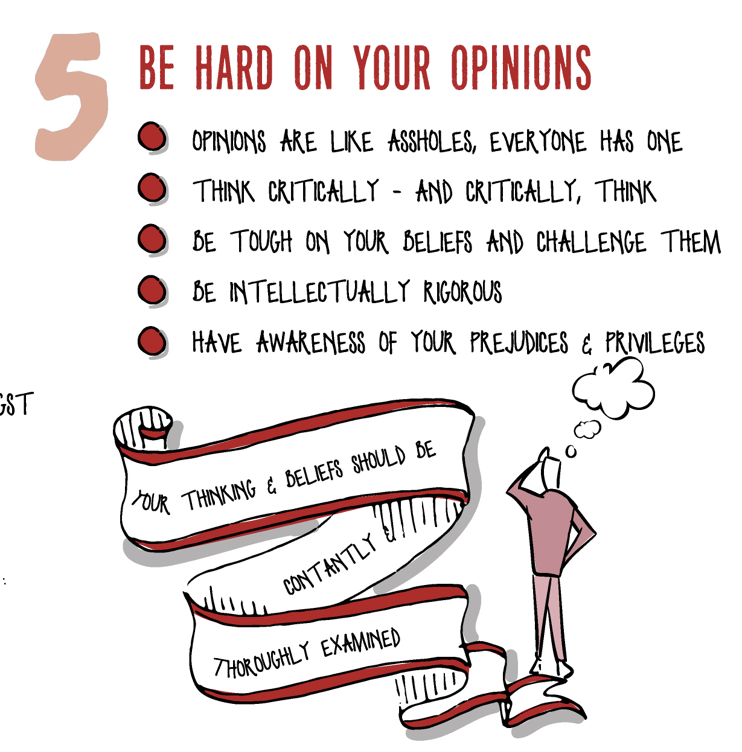 5 BE HARD ON YOUR OPINIONS
OPINIONS ARE LIKE ASSHOLES, EVERYONE HAS ONE
THINK CRITICALLY - AND CRITICALLY, THINK
BE TOUGH ON YOUR BELIEFS AND CHALLENGE THEM
BE INTELLECTUALLY RIGOROUS
HAVE AWARENESS OF YOUR PREJUDICES & PRIVILEGES
YOUR THINKING & BELIEFS SHOULD BE
CONTANTLY &
THOROUGHLY EXAMINED